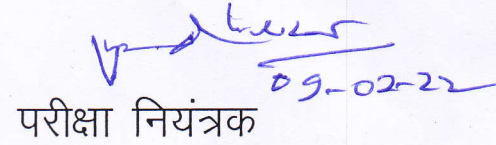 09-02-22
परीक्षा नियंत्रक